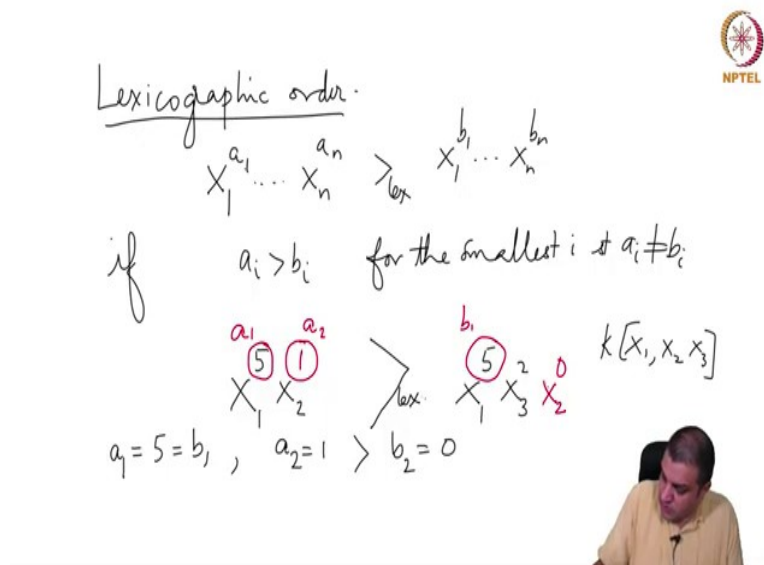 NPTEL
Lexicographic order.
X_1^{a_1} .... X_n^{a_n} >_{lex} X_1^{b_1} ... X_n^{b_n}
if a_i > b_i for the smallest i st a_i ≠ b_i
a_1 a_2 b_1
X_1^5 X_2^1 >_{lex.} X_1^5 X_3^2 X_2^0 k[X_1, X_2 X_3]
a_1 = 5 = b_1 , a_2 = 1 > b_2 = 0